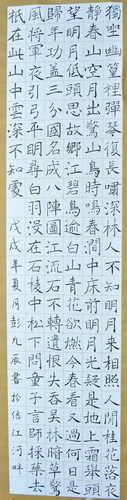 獨坐幽篁裡彈琴復長嘯深林人不知明月來相照人閒桂花落夜
靜春山空月出驚山鳥時鳴春澗中床前明月光疑是地上霜舉頭
望明月低頭思故鄉江碧鳥逾白山青花欲燃今春看又過何日是
歸年功蓋三分國名成八陣圖江流石不轉遺恨失吞吳林暗草驚
風將軍夜引弓平明尋白羽沒在石棱中松下問童子言師採藥去
祇在此山中雲深不知處 戊戌年夏月彭九辰書於信江河畔